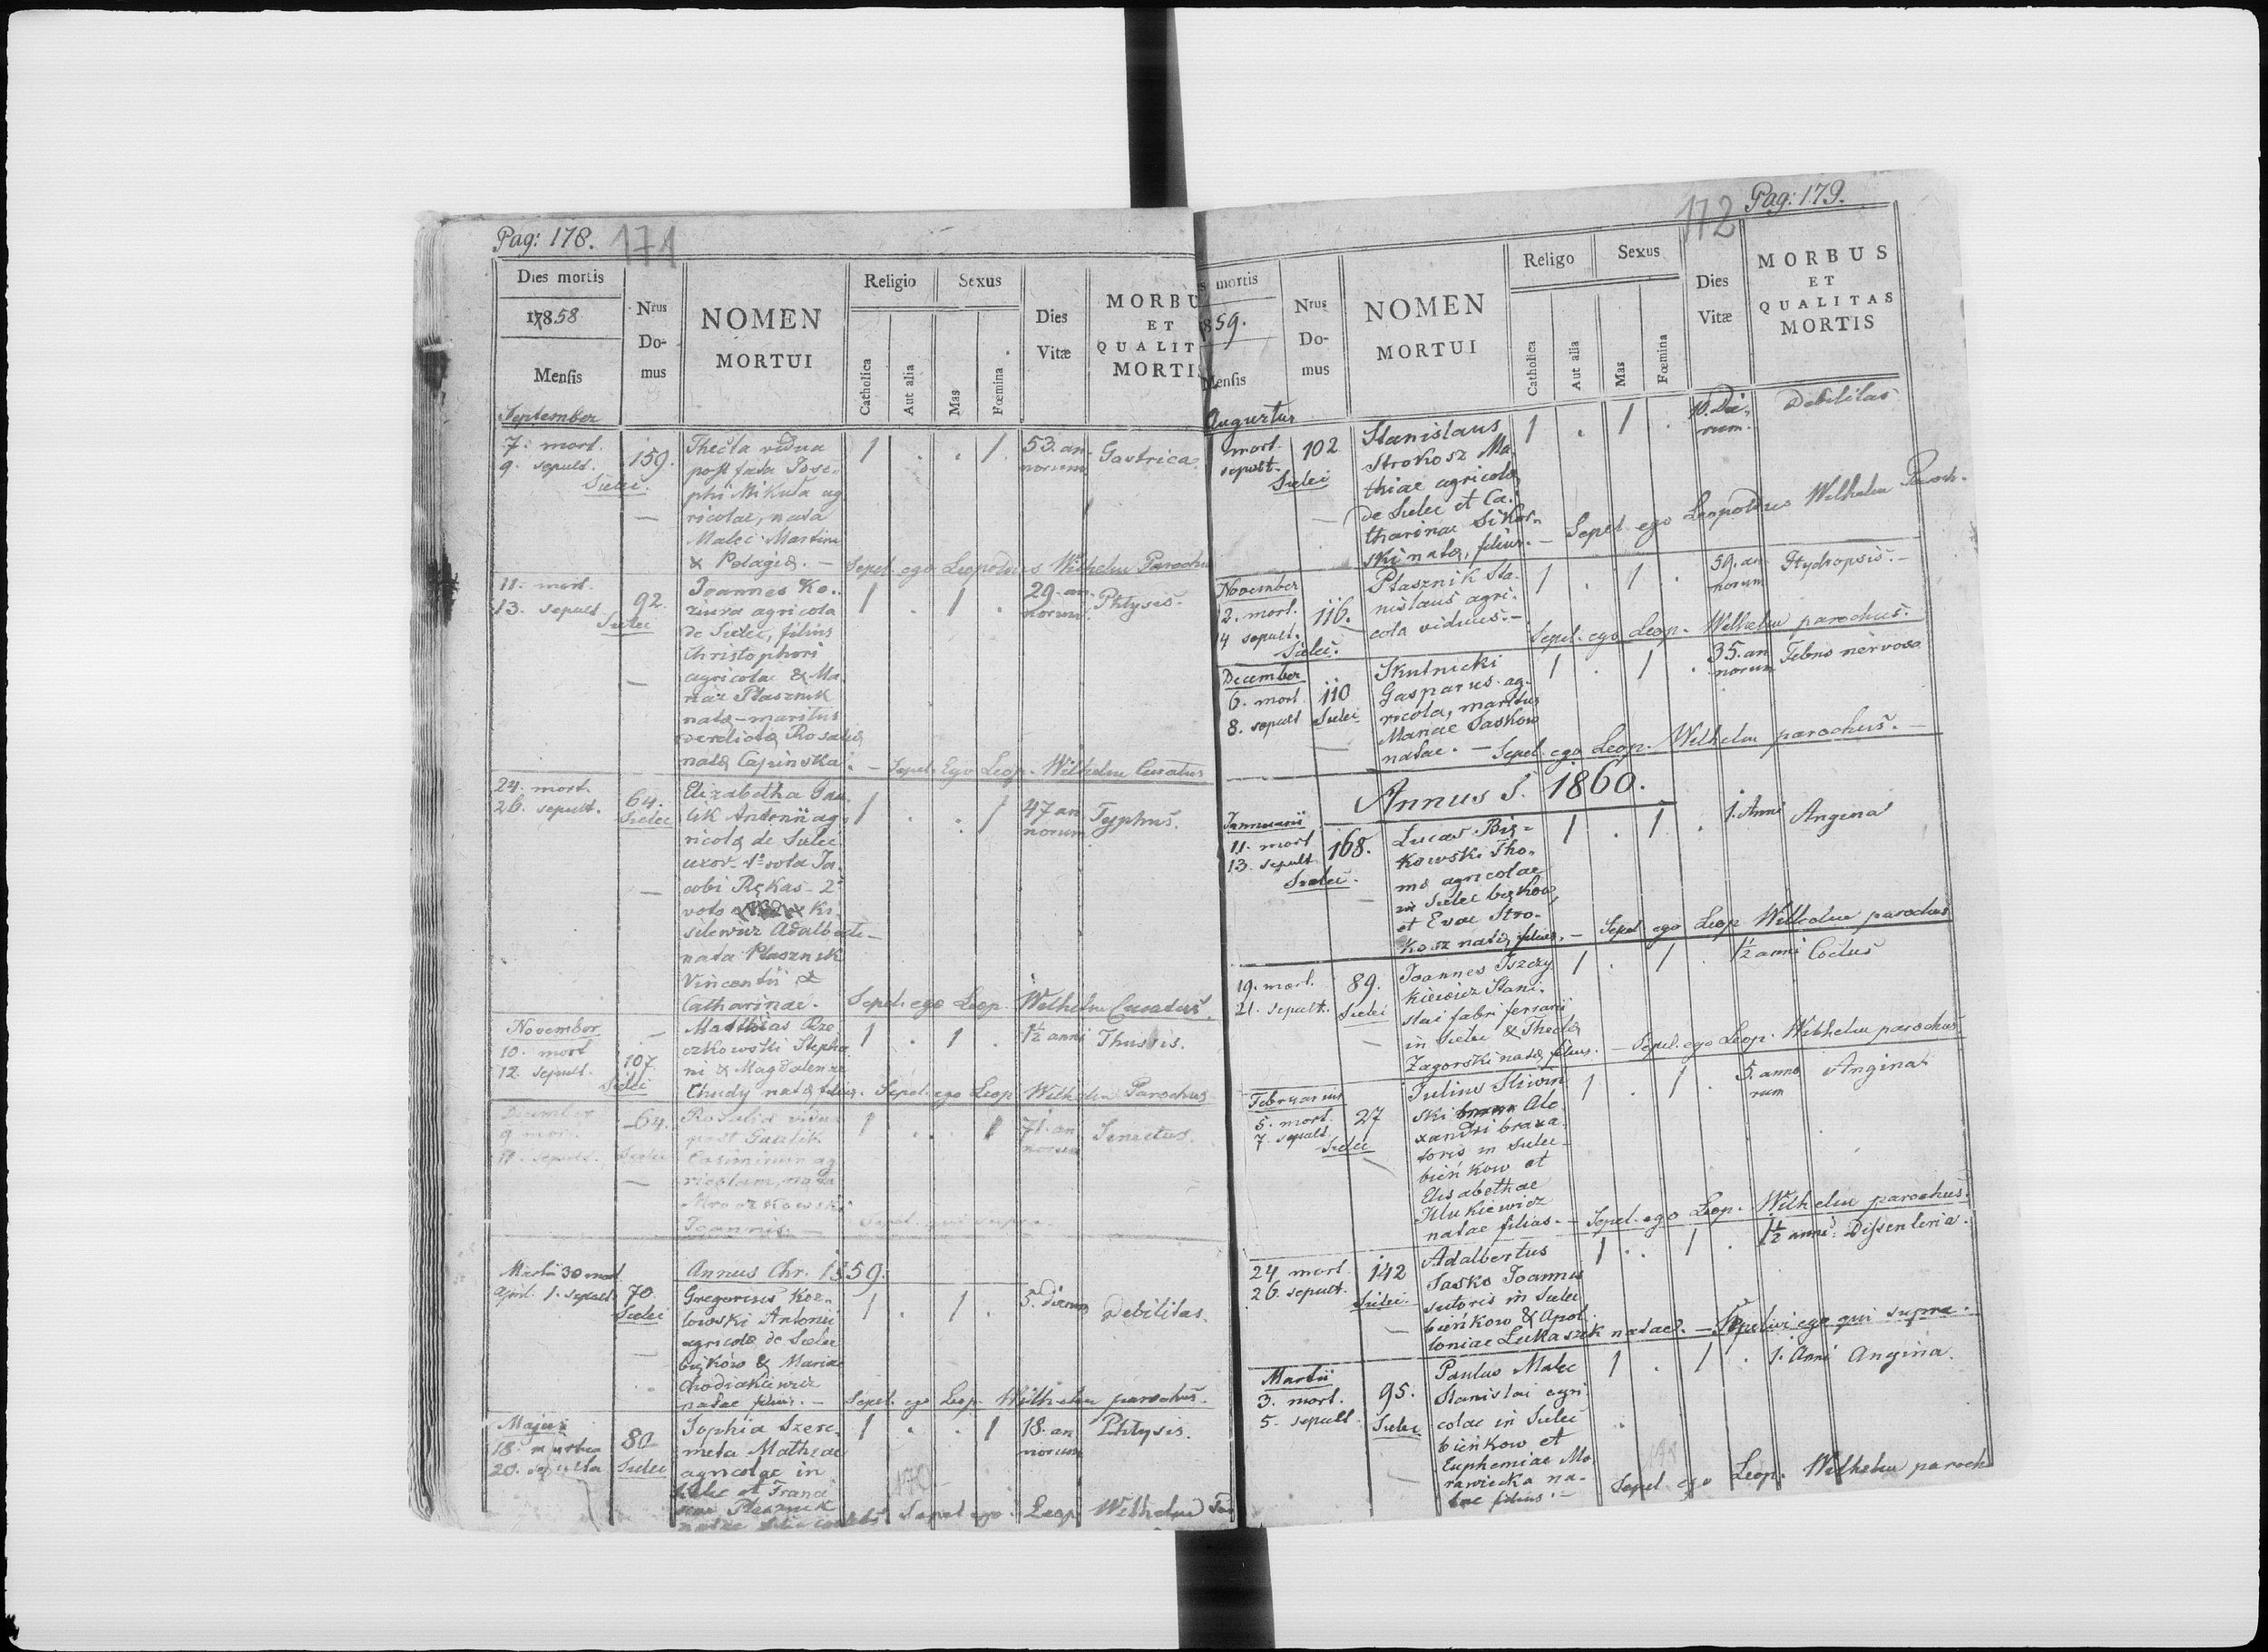 Pag: 178. 171
Dies mortis
1858
Mensis
Nrus
Do-
mus
NOMEN
MORTUI
Religio
Catholica
Aut alia
Sexus
Mas
Fœmina
Dies
Vitæ
MORBU
ET
QUALIT
MORTIS
September
7. mort.
9. sepult.
159.
Sielec.
Thecla vidua
post fata Jose-
phi Mikuła ag
ricolae, nata
Malec Martini
& Pelagię. —
1 . . 1.
53. an
norum
Gastrica.
Sepel. ego Leopoldus Wilhelm Parochu
11. mort.
13. sepult.
92.
Sielec
Joannes Ko..
ziura agricola
de Sielec, filius
Christophori
agricolae & Ma
riae Ptasznik
natę – maritus
derelictę Rosalię
natę Capinska. — Sepel. Ego Leop. Wilhelm Curatus
1 . 1 .
29. an
norum.
Phtysis.
24. mort.
26. sepult.
64.
Sielec
Elizabetha Gau
lik Antonii ag
ricolę de Sielec
uxor – 1o voto Ja
cobi Rękas – 2o
voto Ki
silewicz Adalberti —
nata Ptasznik
Vincentii &
Catharinae.
1 . . 1
47 an
norum
Typhus.
Sepel. ego Leop. Wilhelm Curatus.
November
10. mort
12. sepult.
107
Sielec
Matthias Brze
czkowski Stepha
ni & Magdalenae
Chudy natę filius. Sepel. ego Leop. Wilhelm Parochus
1 . 1 .
1½ anni
Thussis.
December
9 mort.
11. sepult.
64.
Sielec
Rosalia vidua
post Gaulik
Casimirum ag
ricolam, nata
Mroczkowski
Joannis. —
1 . . 1
71. an
norum
Senectus.
Sepel. qui supra.
Annus Chr. 1859.
Martii 30 mort
April. 1. sepult.
70.
Sielec
Gregorius Koz-
lowski Antonii
agricolę de Sielec
bięków & Mariae
Chodiakiewicz
natae filius. —
1 . 1 .
5. dierum
Debilitas.
Sepel. ego Leop. Wilhelm parochus.
Majus
18. mortua
20. sepulta
80
Sielec
Sophia Szere-
meta Mathiae
agricolae in
Sielec et Franci
scae Ptasznik
1 . . 1
18. an
norum
Phtysis.
170
Sepel ego Leop. Wilhelm Par
172 Pag: 179.
s mortis
859.
Mensis
Nrus
Do-
mus
NOMEN
MORTUI
Religo
Catholica
Aut alia
Sexus
Mas
Fœmina
Dies
Vitæ
MORBUS
ET
QUALITAS
MORTIS
Augustus
mort.
sepult.
102
Sielec
Stanislaus
Strokosz Ma
thiae agricolę
de Sielec et Ca-
tharinae Sikor-
ski natę, filius. — Sepel. ego Leopoldus Wilhelm Paroch.
1 . 1 .
10. Die-
rum.
Debilitas
November
12. mort.
14 sepult.
116.
Sielec.
Ptasznik Sta-
nislaus agri-
cola viduus. —
1 . 1 .
59. an
norum
Hydropsis. —
Sepel. ego Leop. Wilhelm parochus.
December
6. mort.
8. sepult
110
Sielec
Skulnicki
Gasparus ag-
ricola, maritus
Mariae Jaskow
natae. — Sepel. ego Leop. Wilhelm parochus. —
1 . 1 .
35. an
norum
Febris nervosa
Annus S. 1860.
Januarii
11. mort
13. sepult
168.
Sielec.
Lucas Bię-
kowski Tho-
mę agricolae
in Sielec bięków
et Evae Stro-
kosz natę, filius. — Sepel ego Leop Wilhelm parochus
1 . 1 .
1. Anni
Angina
19. mort.
21. sepult.
89.
Sielec
Joannes Iszczy
kiewicz Stani-
slai fabri ferrarii
in Sielec & Theclę
Zagorski natę filius. — Sepel. ego Leop. Wilhelm parochus
1 . 1 .
1½ anni
Coctus
Februarius
5. mort.
7. sepult
27
Sielec
Julius Sliwin
ski Ale
xandri braxa
toris in Sielec
bieńkow et
Elisabethae
Hlukiewicz
natae filius. — Sepel. ego Leop. Wilhelm parochus.
1 . 1 .
5. anno
rum
Angina
24 mort.
26. sepult.
142
Sielec
Adalbertus
Jasko Joannis
sutoris in Sielec
bieńkow & Apol
loniae Lukaszek natae. — Sepelivi ego qui supra.
1 . 1 .
1½ anni.
Dissenteria.
Martii
3. mort.
5. sepult.
95.
Sielec
Paulus Malec
Stanislai agri
colae in Sielec
bieńkow et
Euphemiae Mo
rawiecka na-
tae filius. —
1 . 1 .
1. Anni
Angina.
Sepel ego Leop. Wilhelm paroch